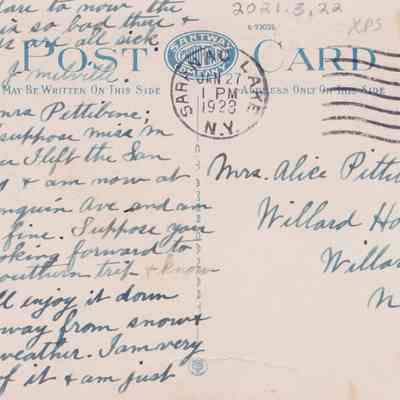 dare to now, the
is so bad there &
rs are all sick.
J. Melville.
POST CARD
SANTWAY
MAY BE WRITTEN ON THIS SIDE
ADDRESS ONLY ON THIS SIDE
SARANAC LAKE
JAN 27
1 PM
1923
N.Y.
2021.3.22
XPS
Mrs Pettibone;
suppose miss m
u I left the San
& am now at
enquin Ave and am
fine. Suppose you
oking forward to
outhern trip & know
ll enjoy it down
way from snow &
weather. I am very
of it & am just
Mrs. Alice Pitti
Willard Ho
Willa
N